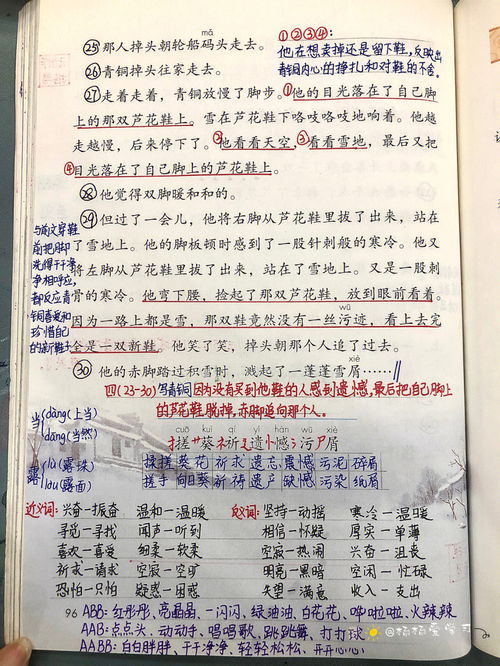 mǎ
㉕那人掉头朝轮船码头走去。
㉖青铜掉头往家走去。
㉗走着走着，青铜放慢了脚步。①他的目光落在了自己脚
上的那双芦花鞋上。雪在芦花鞋下咯吱咯吱地响着。他越
走越慢，后来停下了。②他看看天空，③看看雪地，最后又把
④目光落在了自己脚上的芦花鞋上。
㉘他觉得双脚暖和和的。
㉙但过了一会儿，他将右脚从芦花鞋里拔了出来，站在
了雪地上。他的脚板顿时感到了一股针刺般的寒冷。他又
将左脚从芦花鞋里拔了出来，站在了雪地上。又是一股刺
骨的寒冷。他弯下腰，捡起了那双芦花鞋，放到眼前看着。
wū
因为一路上都是雪，那双鞋竟然没有一丝污迹，看上去完
全是一双新鞋。他笑了笑，掉头朝那个人追了过去。
xiè
㉚他的赤脚踏过积雪时，溅起了一蓬蓬雪屑……
①②③④:
他在想卖掉还是留下鞋，反映出
青铜内心的挣扎和对鞋的不舍。
与前文穿鞋
前把脚
洗得干干净
净相呼应，
都反应青
铜喜爱和
珍惜自己
的新鞋子
四(23-30)写青铜因为没有买到他鞋的人感到遗憾，最后把自己脚上
的芦花鞋脱掉，赤脚追向那个人。
当 dāng(上当)
dāng(当然)
露 lù(露珠)
lòu(露面)
cuō kuí qí yí hàn wū xiè
搓 葵 祈 遗 憾 污 屑
揉搓 葵花 祈求 遗忘 震憾 污泥 碎屑
搓手 向日葵 祈祷 遗产 缺憾 污染 纸屑
近义词: 兴奋—振奋 温和—温暖 反义词: 坚持—动摇 寒冷—温暖
寻觅—寻找 闻声—听到 相信—怀疑 厚实—单薄
喜欢—喜爱 细柔—软柔 空寂—热闹 兴奋—沮丧
祈求—请求 空寂—空旷 明亮—黑暗 空闲—忙碌
恐怕—只怕 疑惑—困惑 失望—满意 收入—支出
96 ABB: 红彤彤、亮晶晶、一闪闪、绿油油、白花花、哗啦啦、火辣辣
AAB: 点点头、动动手、唱唱歌、跳跳舞、打打球
AABB: 白白胖胖、干干净净、轻轻松松、开开心心